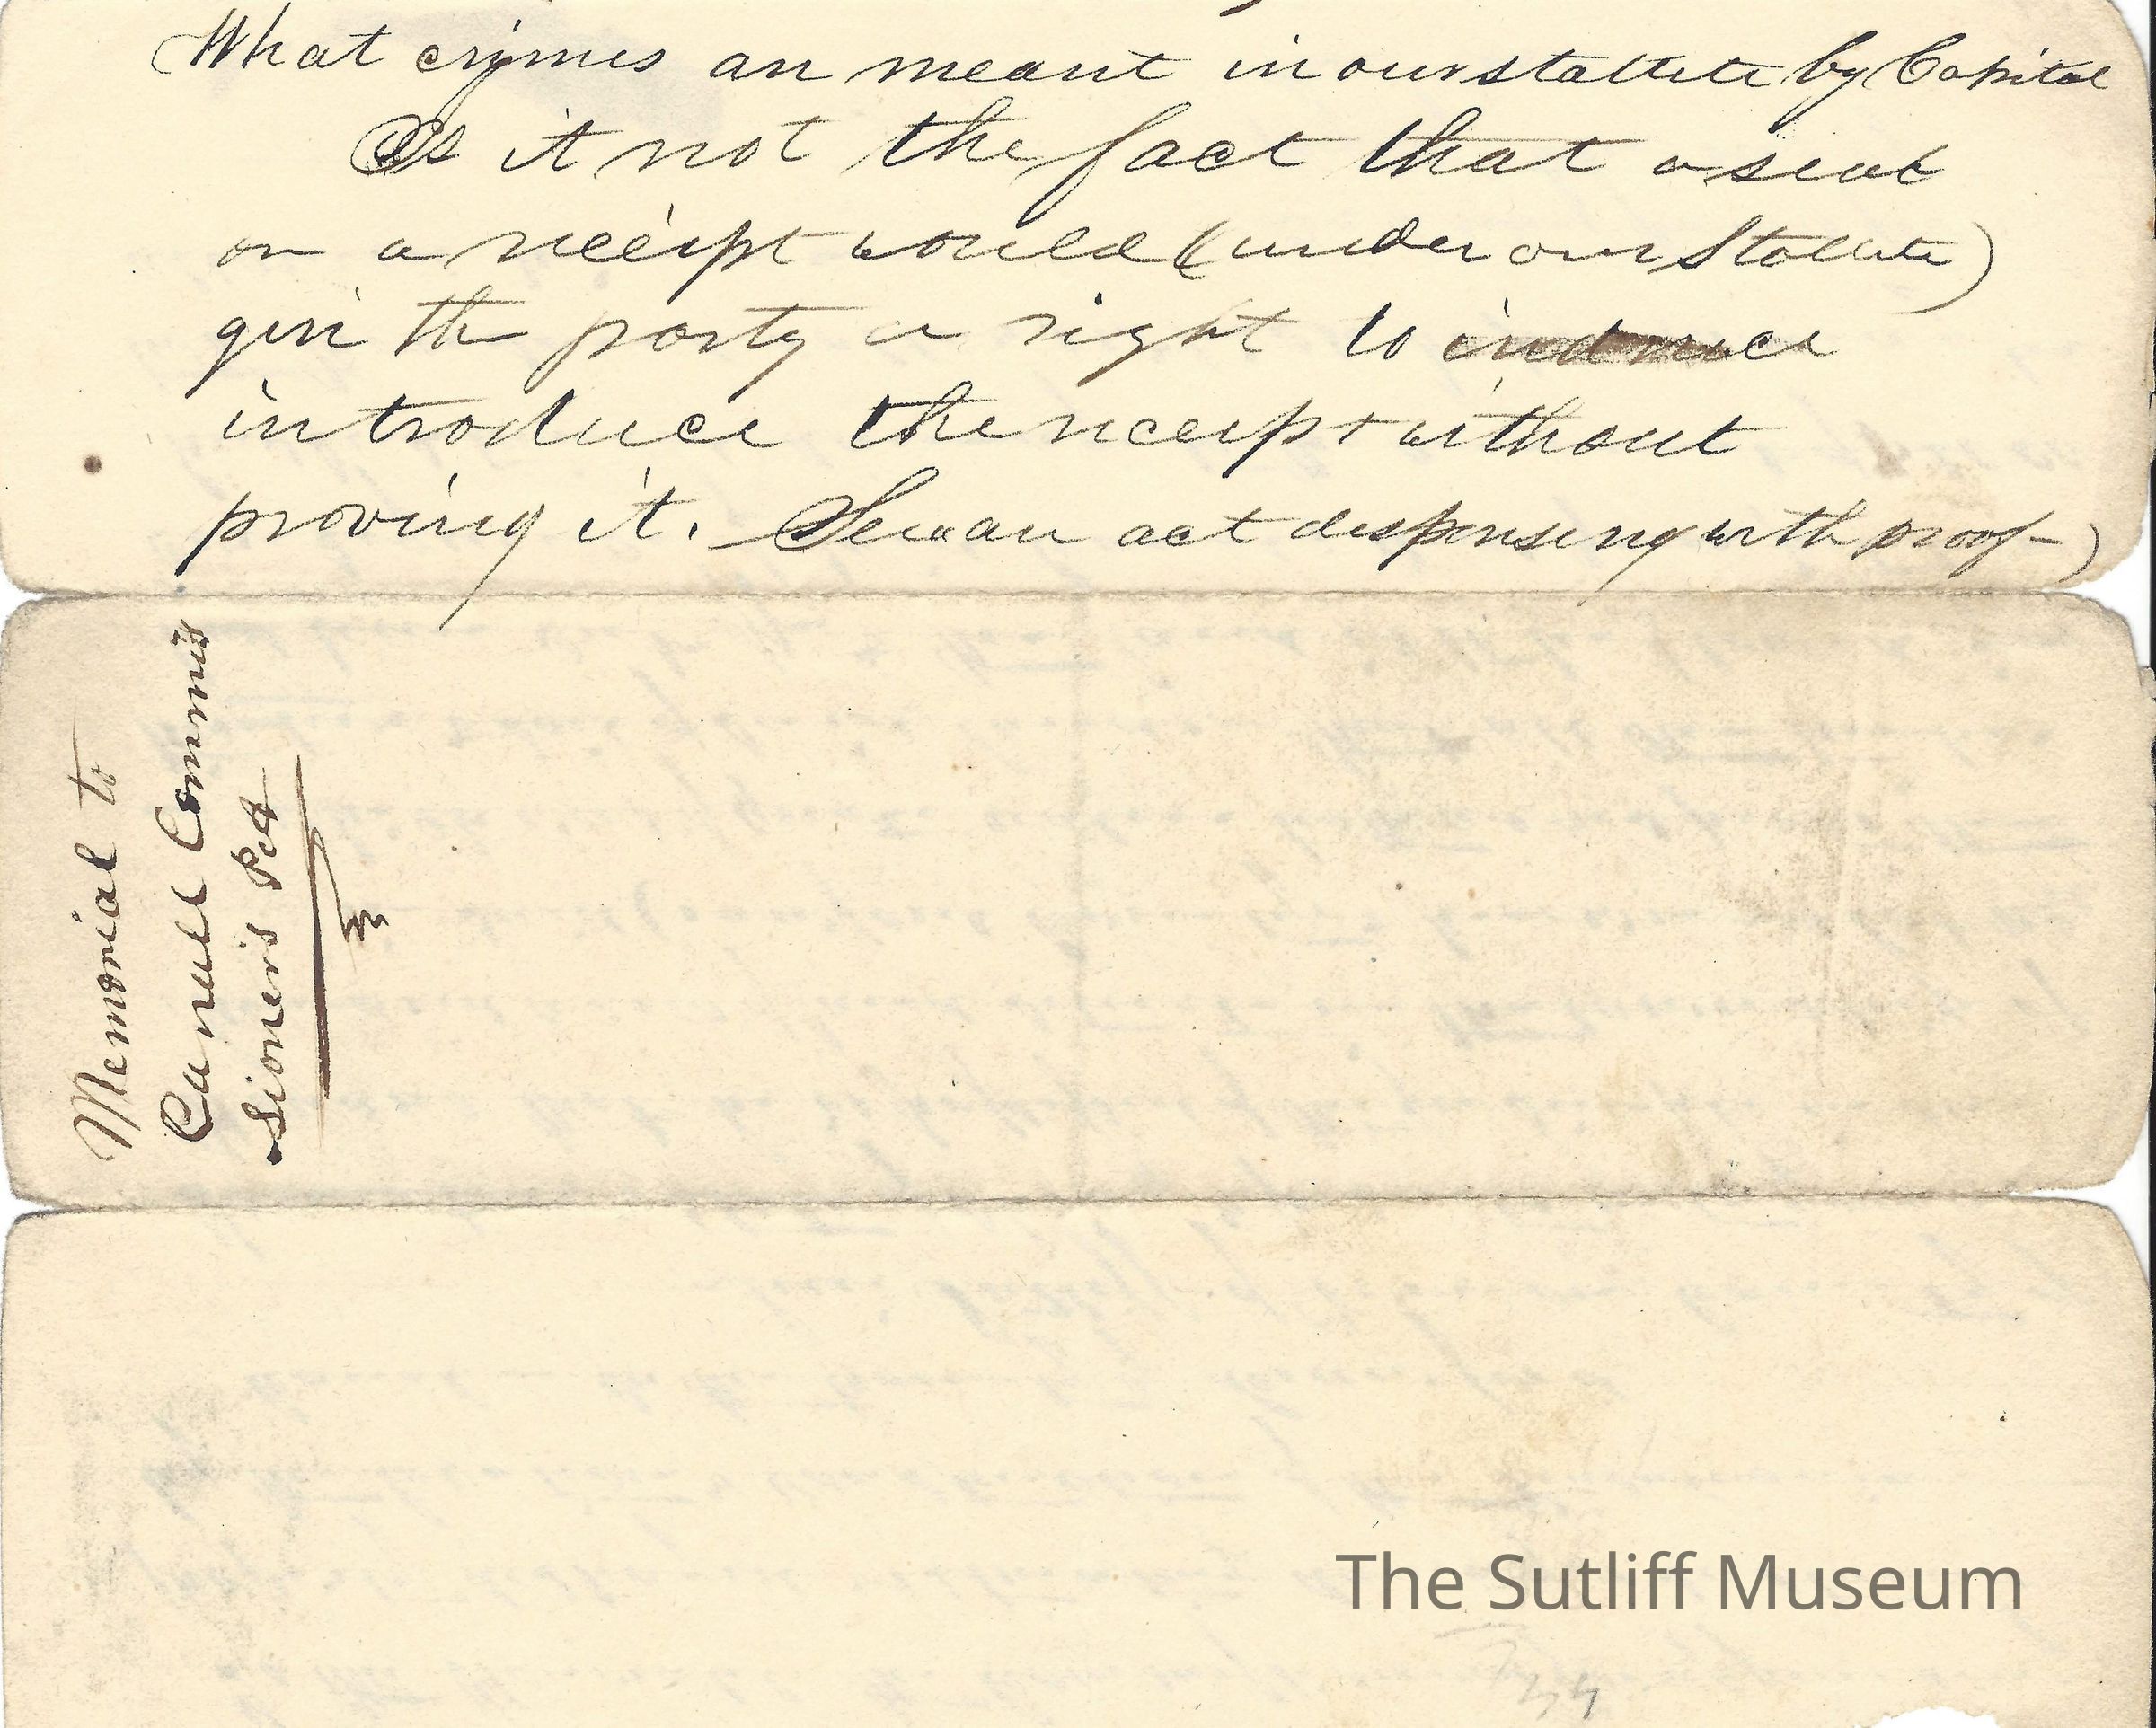 What crimes are meant in our stattute by Capital
Is it not the fact that a seal
on a receipt would (under our Stattute)
give the party a right to
introduce the receipt without
proving it. Swan act dispensing with proof-)
Memorial to
Canall Commis
sioners
The Sutliff Museum
34